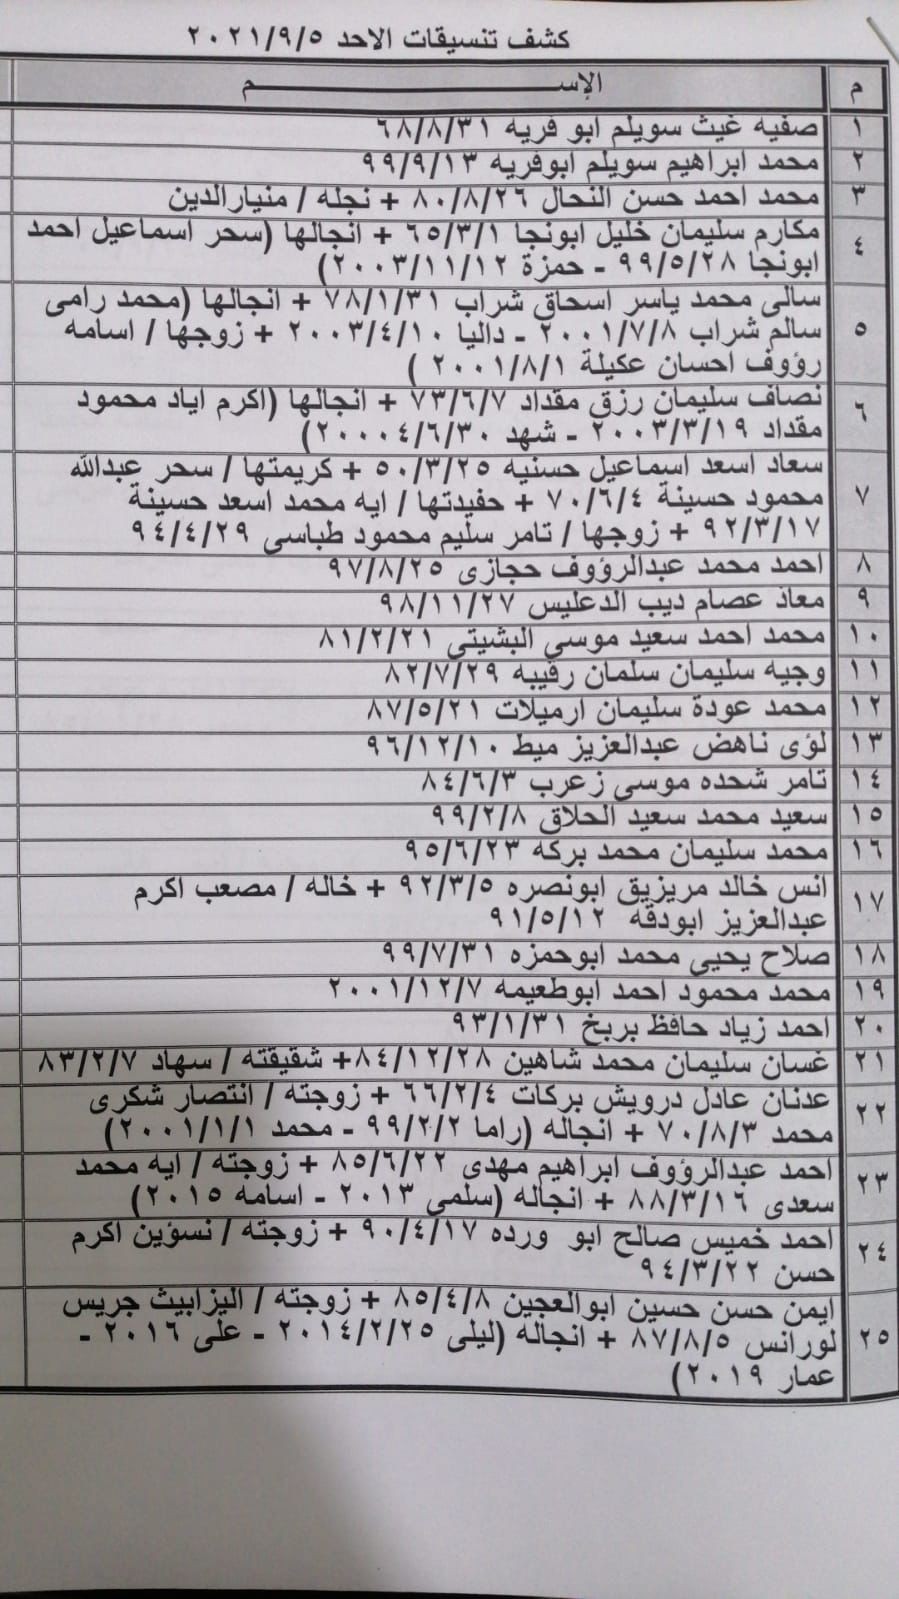 كشف تنسيقات الاحد ٢٠٢١/٩/٥
م الإســــــــــــــــم
١ صفيه غيث سويلم ابو فريه ٦٨/٨/٣١
٢ محمد ابراهيم سويلم ابوفريه ٩٩/٩/١٣
٣ محمد احمد حسن النحال ٨٠/٨/٢٦ + نجله / منيارالدين
٤ مكارم سليمان خليل ابونجا ٦٥/٣/١ + انجالها (سحر اسماعيل احمد
ابونجا ٩٩/٥/٢٨ - حمزة ٢٠٠٣/١١/١٢)
٥ سالى محمد ياسر اسحاق شراب ٧٨/١/٣١ + انجالها (محمد رامى
سالم شراب ٢٠٠١/٧/٨ - داليا ٢٠٠٣/٤/١٠ + زوجها / اسامه
رؤوف احسان عكيلة ٢٠٠١/٨/١ )
٦ نصاف سليمان رزق مقداد ٧٣/٦/٧ + انجالها (اكرم اياد محمود
مقداد ٢٠٠٣/٣/١٩ - شهد ٢٠٠٠٤/٦/٣٠)
٧ سعاد اسعد اسماعيل حسنيه ٥٠/٣/٢٥ + كريمتها / سحر عبدالله
محمود حسينة ٧٠/٦/٤ + حفيدتها / ايه محمد اسعد حسينة
٩٢/٣/١٧ + زوجها / تامر سليم محمود طباسى ٩٤/٤/٢٩
٨ احمد محمد عبدالرؤوف حجازى ٩٧/٨/٢٥
٩ معاذ عصام ديب الدعليس ٩٨/١١/٢٧
١٠ محمد احمد سعيد موسي البشيتي ٨١/٢/٢١
١١ وجيه سليمان سلمان رقيبه ٨٢/٧/٢٩
١٢ محمد عودة سليمان ارميلات ٨٧/٥/٢١
١٣ لؤى ناهض عبدالعزيز ميط ٩٦/١٢/١٠
١٤ تامر شحده موسي زعرب ٨٤/٦/٣
١٥ سعيد محمد سعيد الحلاق ٩٩/٢/٨
١٦ محمد سليمان محمد بركه ٩٥/٦/٢٣
١٧ انس خالد مريزيق ابونصره ٩٢/٣/٥ + خاله / مصعب اكرم
عبدالعزيز ابودقه ٩١/٥/١٢
١٨ صلاح يحيى محمد ابوحمزه ٩٩/٧/٣١
١٩ محمد محمود احمد ابوطعيمه ٢٠٠١/١٢/٧
٢٠ احمد زياد حافظ بربخ ٩٣/١/٣١
٢١ غسان سليمان محمد شاهين ٨٤/١٢/٢٨+ شقيقته / سهاد ٨٣/٢/٧
٢٢ عدنان عادل درويش بركات ٦٦/٢/٤ + زوجته / انتصار شكرى
محمد ٧٠/٨/٣ + انجاله (راما ٩٩/٢/٢ - محمد ٢٠٠١/١/١)
٢٣ احمد عبدالرؤوف ابراهيم مهدى ٨٥/٦/٢٢ + زوجته / ايه محمد
سعدى ٨٨/٣/١٦ + انجاله (سلمى ٢٠١٣ - اسامه ٢٠١٥)
٢٤ احمد خميس صالح ابو ورده ٩٠/٤/١٧ + زوجته / نسؤين اكرم
حسن ٩٤/٣/٢٢
٢٥ ايمن حسن حسين ابوالعجين ٨٥/٤/٨ + زوجته / اليزابيث جريس
لورانس ٨٧/٨/٥ + انجاله (ليلى ٢٠١٤/٢/٢٥ - على ٢٠١٦ -
عمار ٢٠١٩)